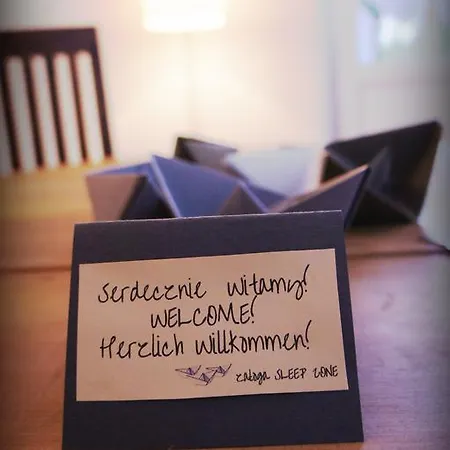 Serdecznie witamy!
WELCOME!
Herzlich willkommen!
załoga SLEEP ZONE